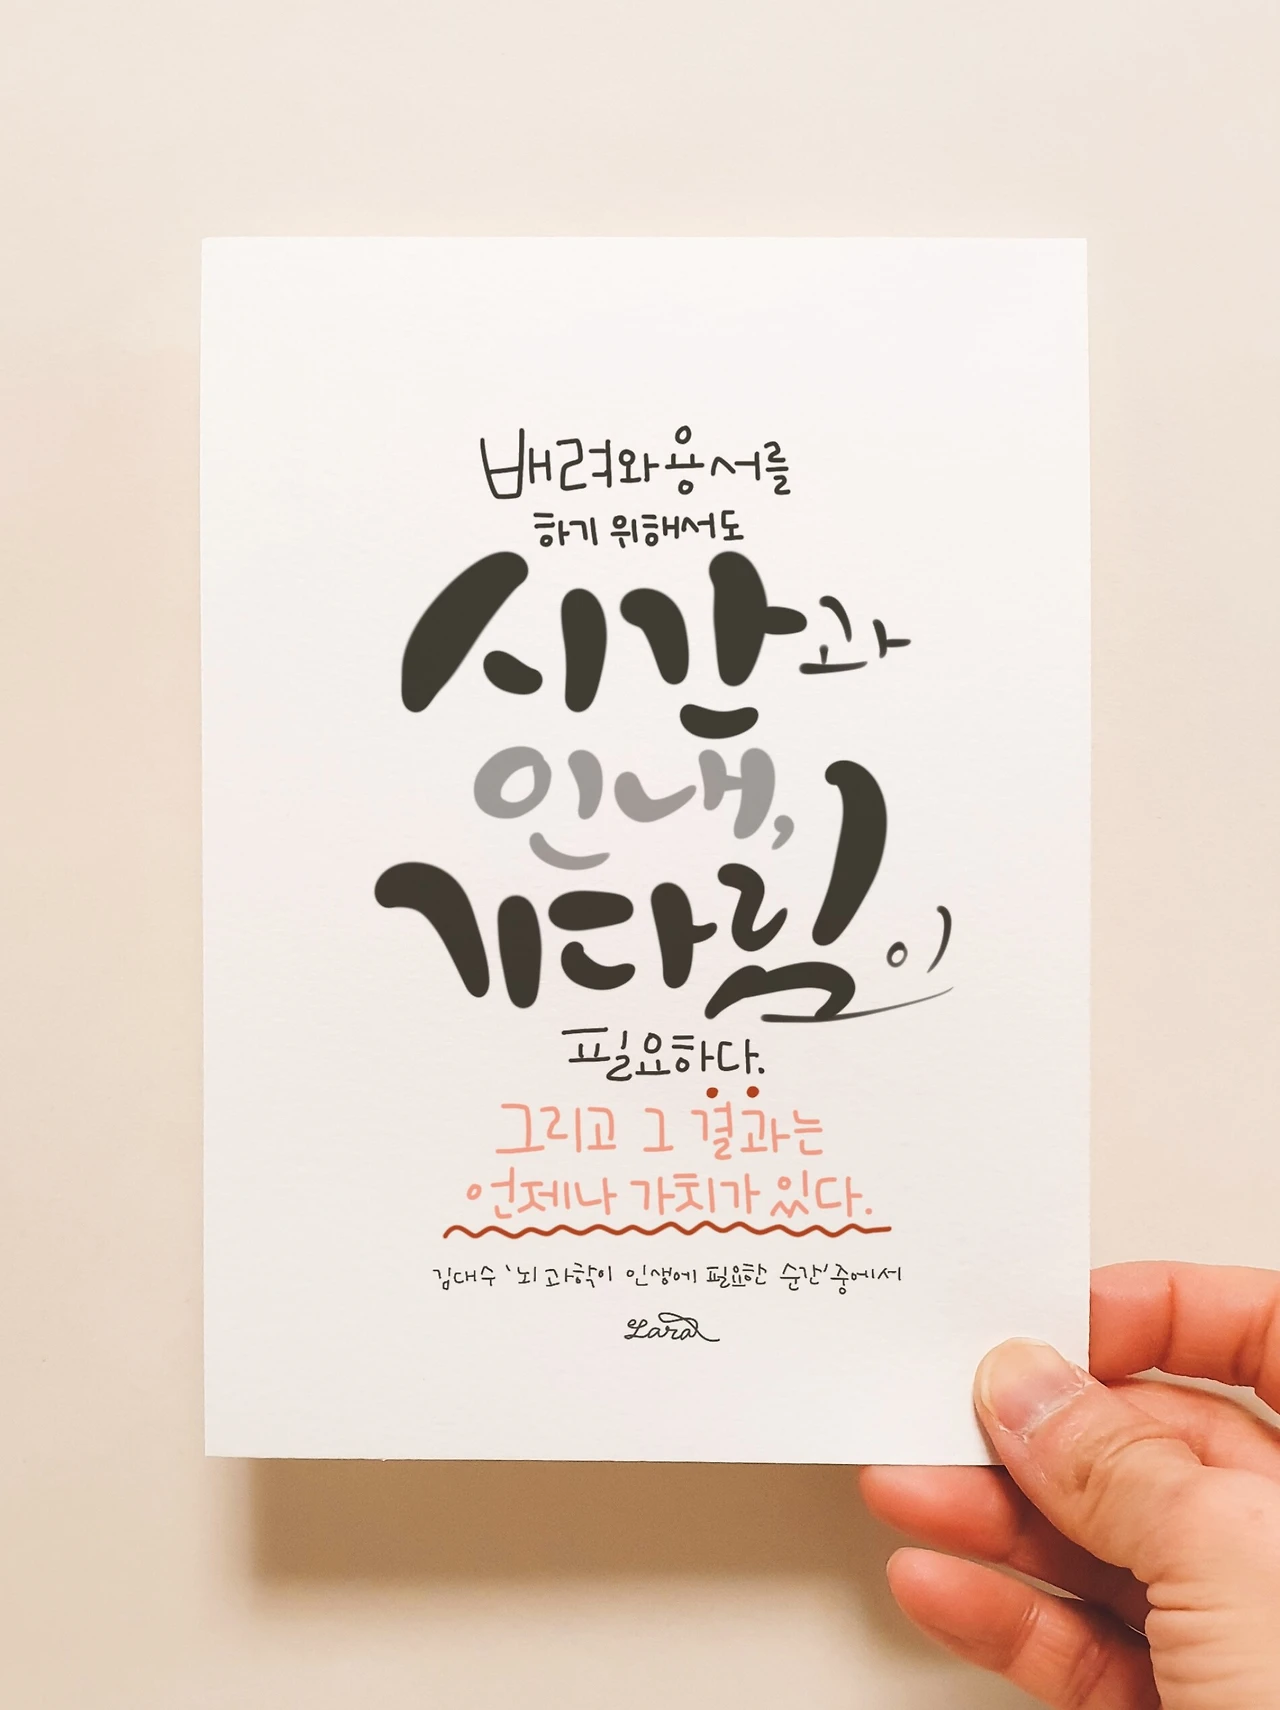 배려와 용서를
하기 위해서도
시간과
인내,
기다림이
필요하다.
그리고 그 결과는
언제나 가치가 있다.
김대수 '뇌 과학이 인생에 필요한 순간' 중에서
Lara